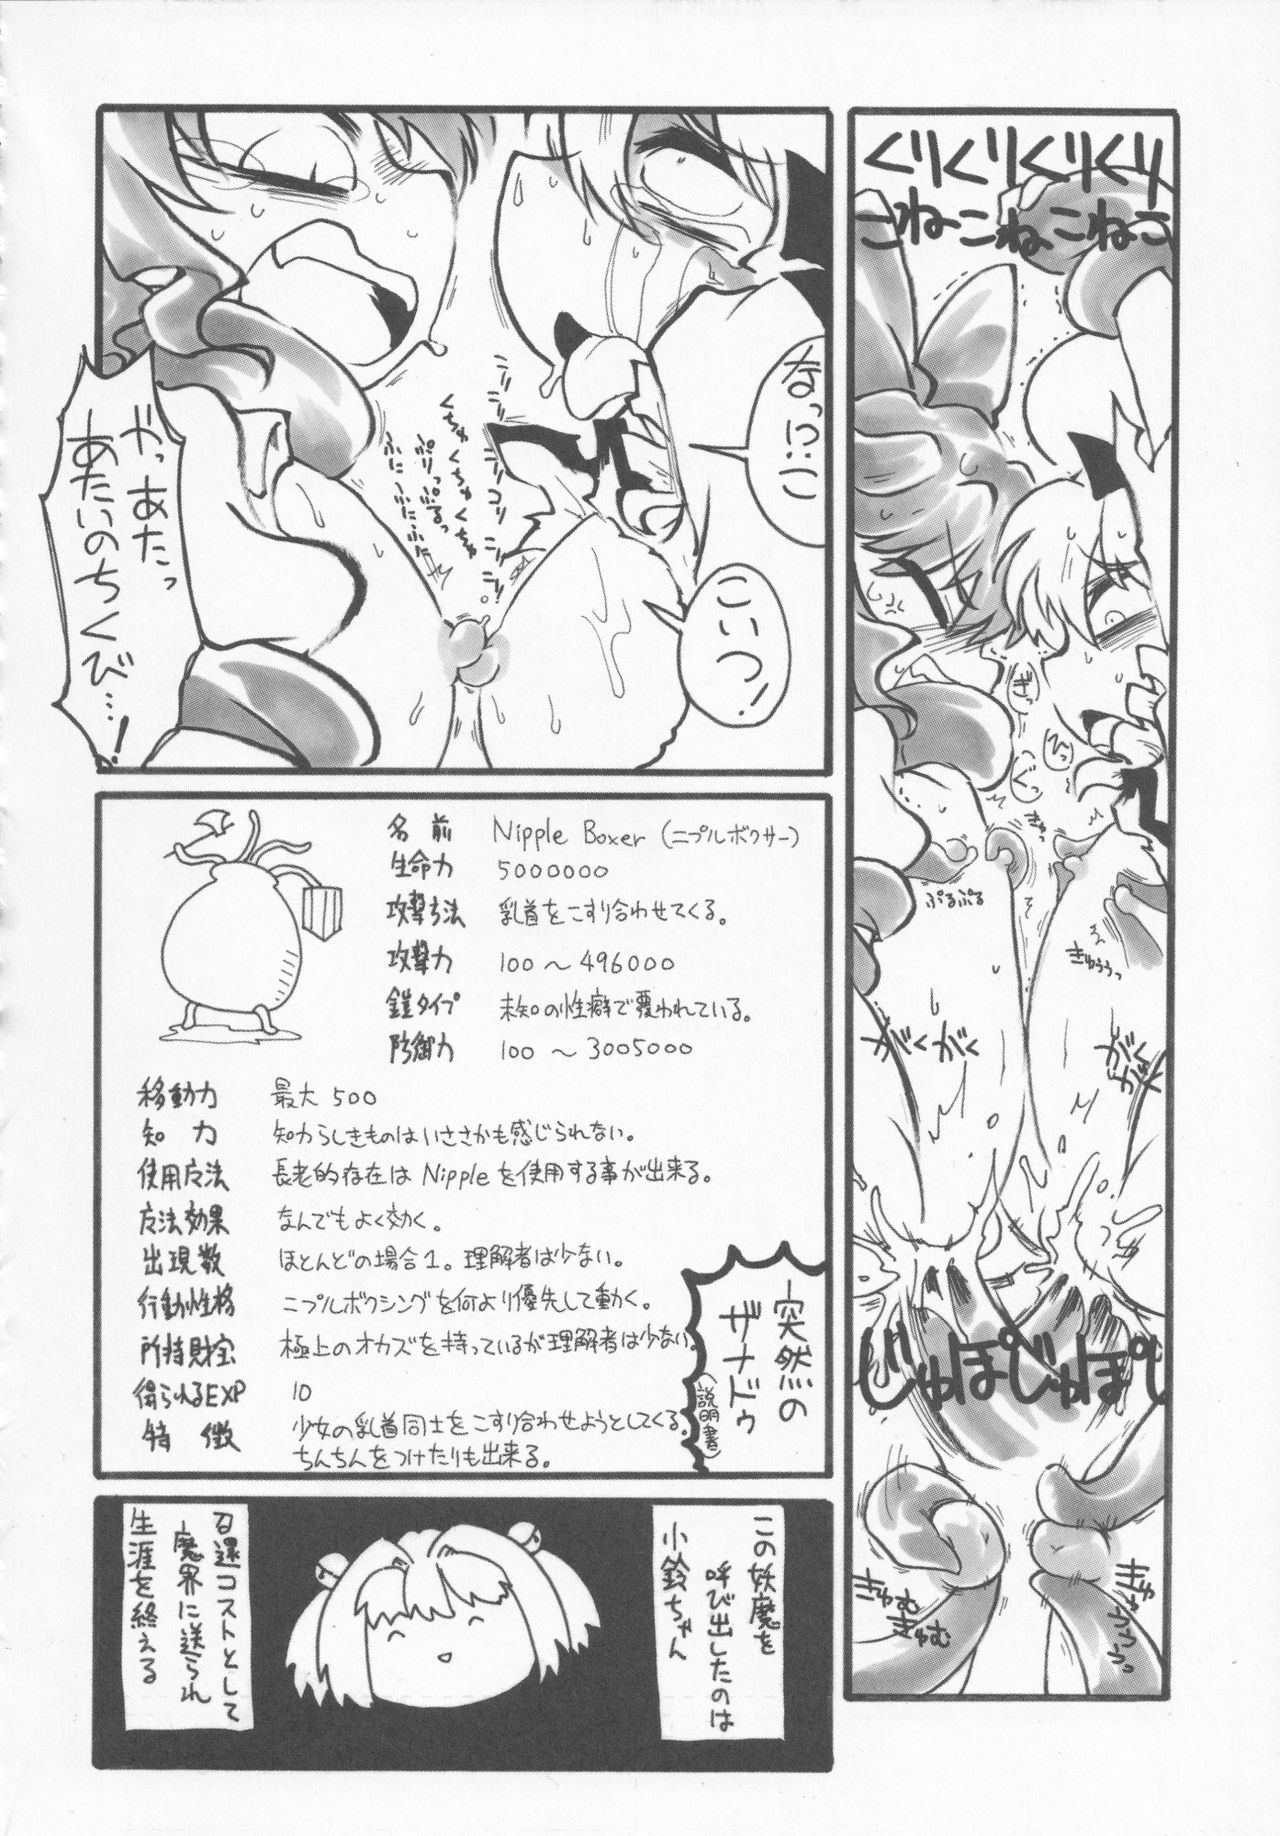 くりくりくりくり
こねこねこねこ
ぎっ
ひっ
ぐっ
きゅっ
ぷるぷる
きゅううっ
がくがく
がくがく
じゅぽじゅぽ
きゅむきゅむ
きゅううううっ
なっ!?こ
こいつ!
コリコリ
くちゅくちゅくちゅ
ぷりっぷるっ
ふにふにふに
やっあたっ
あたいのちくび…!
名前 Nipple Boxer(ニプルボクサー)
生命力 5000000
攻撃方法 乳首をこすり合わせてくる。
攻撃力 100〜496000
鎧タイプ 未知の性癖で覆われている。
防御力 100〜3005000
移動力 最大500
知力 知力らしきものはいささかも感じられない。
使用方法 長老的存在はNippleを使用する事が出来る。
方法効果 なんでもよく効く。
出現数 ほとんどの場合1。理解者は少ない。
行動性格 ニプルボクシングを何より優先して動く。
所持財宝 極上のオカズを持っているが理解者は少ない。
得られるEXP 10
特徴 少女の乳首同士をこすり合わせようとしてくる。
ちんちんをつけたりも出来る。
突然の
ザナドゥ
(説明書)
この妖魔を
呼び出したのは
小鈴ちゃん
召還コストとして
魔界に送られ
生涯を終える